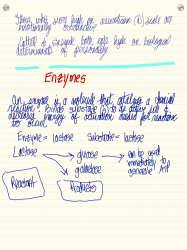 They with very high for neuroticism (N) scale are emotionally
Cattell & Eysenck both rely high on biological
determinants of personality
Enzymes
An enzyme is a molecule that catalyzes a chemical
reaction. Binds substrate (s) to its active site &
energy of activation needed for reactions
to occur.
Enzyme = lactase Substrate = lactose
Lactose
glucose
galactose
can be used
immediately to
generate ATP
Reactant
Products